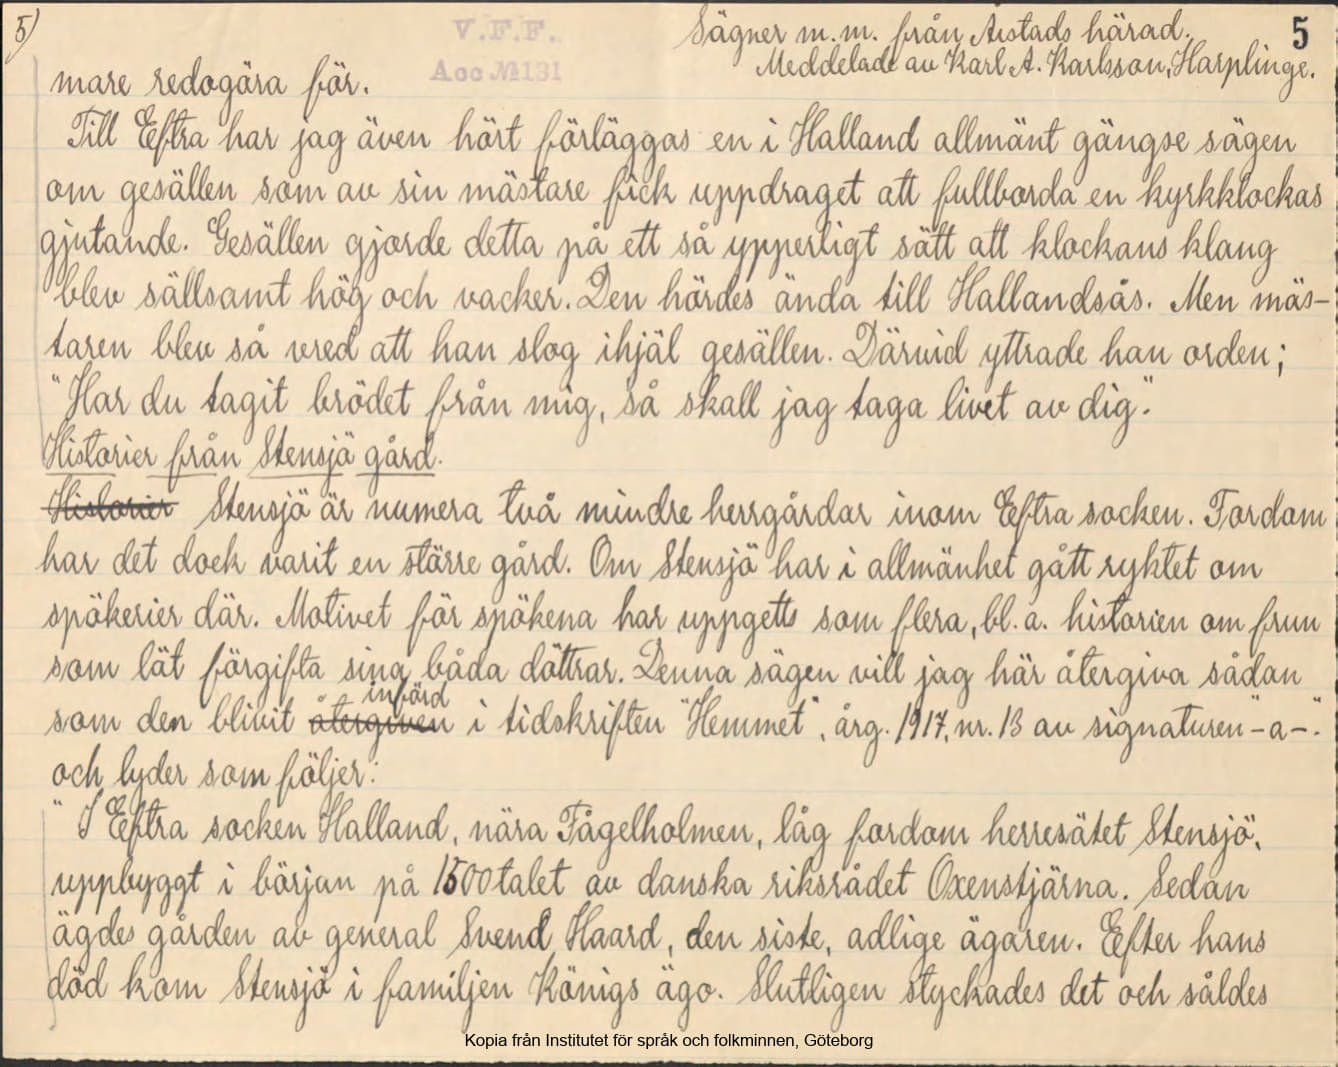 5)
V.F.F.
Acc.№131
Sägner m.m. från Årstads härad.
Meddelade av Karl A. Karlsson, Harplinge.
5
mare redogöra för.
Till Eftra har jag även hört förläggas en i Halland allmänt gängse sägen
om gesällen som av sin mästare fick uppdraget att fullborda en kyrkklockas
gjutande. Gesällen gjorde detta på ett så ypperligt sätt att klockans klang
blev sällsamt hög och vacker. Den hördes ända till Hallandsås. Men mäs-
taren blev så vred att han slog ihjäl gesällen. Därvid yttrade han orden;
"Har du tagit brödet från mig, så skall jag taga livet av dig."
Historier från Stensjö gård.
Historier Stensjö är numera två mindre herrgårdar inom Eftra socken. Fordom
har det dock varit en större gård. Om Stensjö har i allmänhet gått ryktet om
spökerier där. Motivet för spökena har uppgetts som flera, bl.a. historien om frun
som lät förgifta sina båda döttrar. Denna sägen vill jag här återgiva sådan
införd
som den blivit återgiven i tidskriften "Hemmet", årg. 1917, nr. 13 av signaturen "-a-".
och lyder som följer:
" I Eftra socken Halland, nära Fågelholmen, låg fordom herresätet Stensjö,
uppbyggt i början på 1500talet av danska riksrådet Oxenstjärna. Sedan
ägdes gården av general Svend Haard, den siste, adlige ägaren. Efter hans
död kom Stensjö i familjen Königs ägo. Slutligen styckades det och såldes
Kopia från Institutet för språk och folkminnen, Göteborg